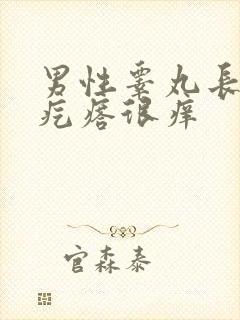 男性睾丸長
疙瘩很癢
官森泰